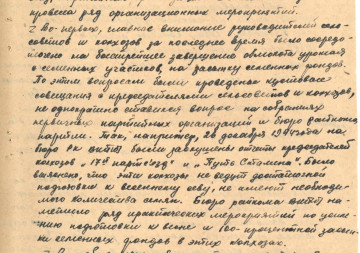 провела ряд организационных мероприятий.
Во-первых, главное внимание руководителей сель-
советов и колхозов за последнее время было сосредо-
точено на быстрейшее завершение обмолота урожая
с семенных участков, на засыпку семенных фондов.
По этим вопросам были проведены кустовые
совещания с председателями сельсоветов и колхозов,
неоднократно ставился вопрос на собраниях
первичных партийных организаций и бюро райкома
партии. Так, например, 26 декабря 194 года на
бюро РК ВКП(б) были заслушаны отчеты председателей
колхозов "17й партсъезд" и "Путь Сталина". Было
выявлено, что эти колхозы не ведут достаточной
подготовки к весеннему севу, не имеют необходи-
мого количества семян. Бюро райкома ВКП(б) на-
метило ряд практических мероприятий по усиле-
нию подготовки к весне и 100-процентной засып-
ки семенных фондов в этих колхозах.